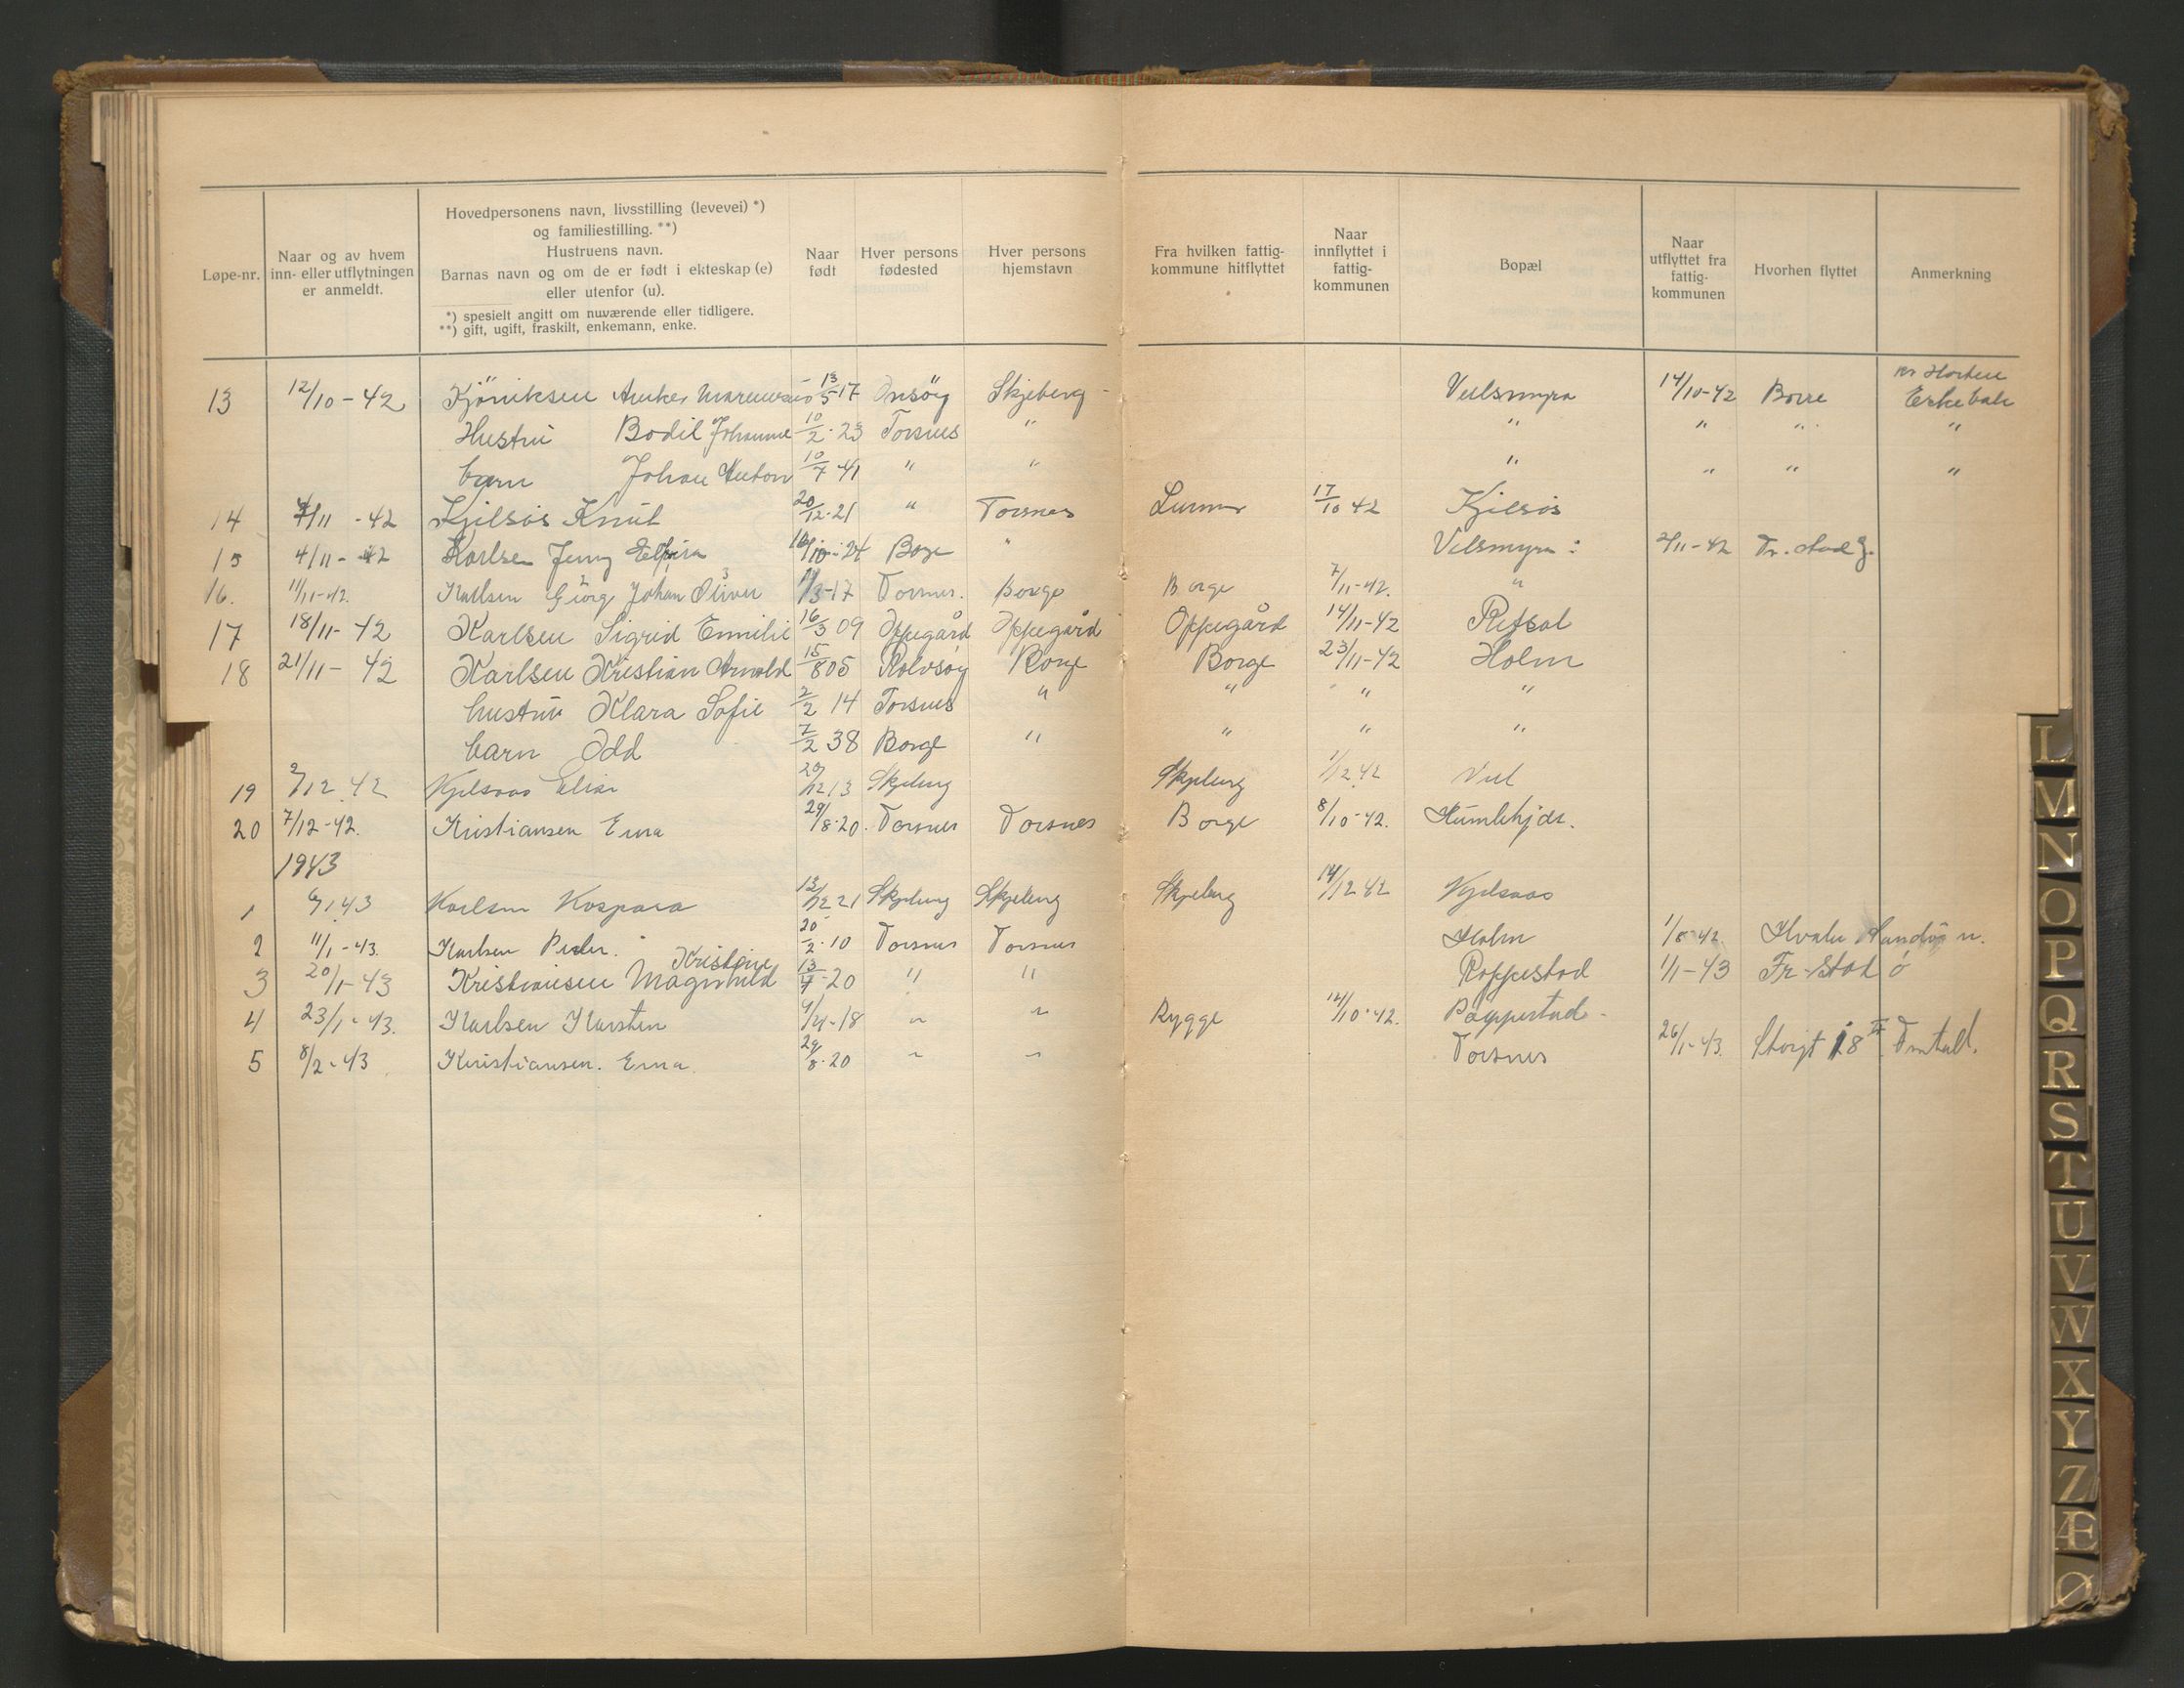 Løpe-nr.
Naar og av hvem
inn- eller utflytningen
er anmeldt.
Hovedpersonens navn, livsstilling (levevei) *)
og familiestilling. **)
Hustruens navn.
Barnas navn og om de er født i ekteskap (e)
eller utenfor (u).
*) spesielt angitt om nuværende eller tidligere.
**) gift, ugift, fraskilt, enkemann, enke.
Naar
født
Hver persons
fødested
Hver persons
hjemstavn
Fra hvilken fattig-
kommune hitflyttet
Naar
innflyttet i
fattig-
kommunen
Bopæl
Naar
utflyttet fra
fattig-
kommunen
Hvorhen flyttet
Anmerkning
13 12/10-42 13/5 17 Onsöy Skjeberg 14/10-42 Borre
Hustru Bodil Johanne 10/2-23 Torsnes " " " " "
barn Johan Anton 10/7 41 " " " " " "
14 /11-42 Kjilsös Knut 20/12-21 " Torsnes 17/10 42 Kjilsös
15 4/11-42 Karlsen Jenny 24 " Velsmyra 2/11-42
16. 11/11-42. Karlsen Georg Johan Oliver /3-17 Torsnes. Borge Borge 7/11-42. "
17 18/11-42 Karlsen Sigrid Emilie 16/3 09 Oppegård Oppegård Oppegård 14/11-42
18 21/11-42 Karlsen Kristian Arnold 15/8 05 Rolvsöy Borge Borge 23/11-42 Holm
hustru Klara Sofie 2/2 14 Torsnes " " " "
barn Odd 7/2 38 Borge " " " "
19 2/12 42 Kjelsaas 20/12 13 Skjeberg Skjeberg 1/12 42
20 7/12-42. Kristiansen Erna 29/8-20. Torsnes Torsnes Borge 8/10-42.
1943
1 6/1 43 Karlsen Kaspara 12/12 21 Skjeberg Skjeberg Skjeberg 14/12 42 Kjelsaas
2 11/1-43. Karlsen Peder. 20/2-10 Torsnes Torsnes Holm 1/8-42.
Kristine
3 20/1-43 Kristiansen Magnhild 13/4-20 " " Roppestad 1/1-43 Fr-stad ö
4 23/1-43. Karlsen Karsten 4/4-18 " " Rygge 12/10-42. Roppestad
5 8/2-43 Kristiansen. Erna. 29/8-20 " " Torsnes 26/1-43. Storgt 18
L
M
N
O
P
Q
R
S
T
U
V
W
X
Y
Z
Æ
Ø